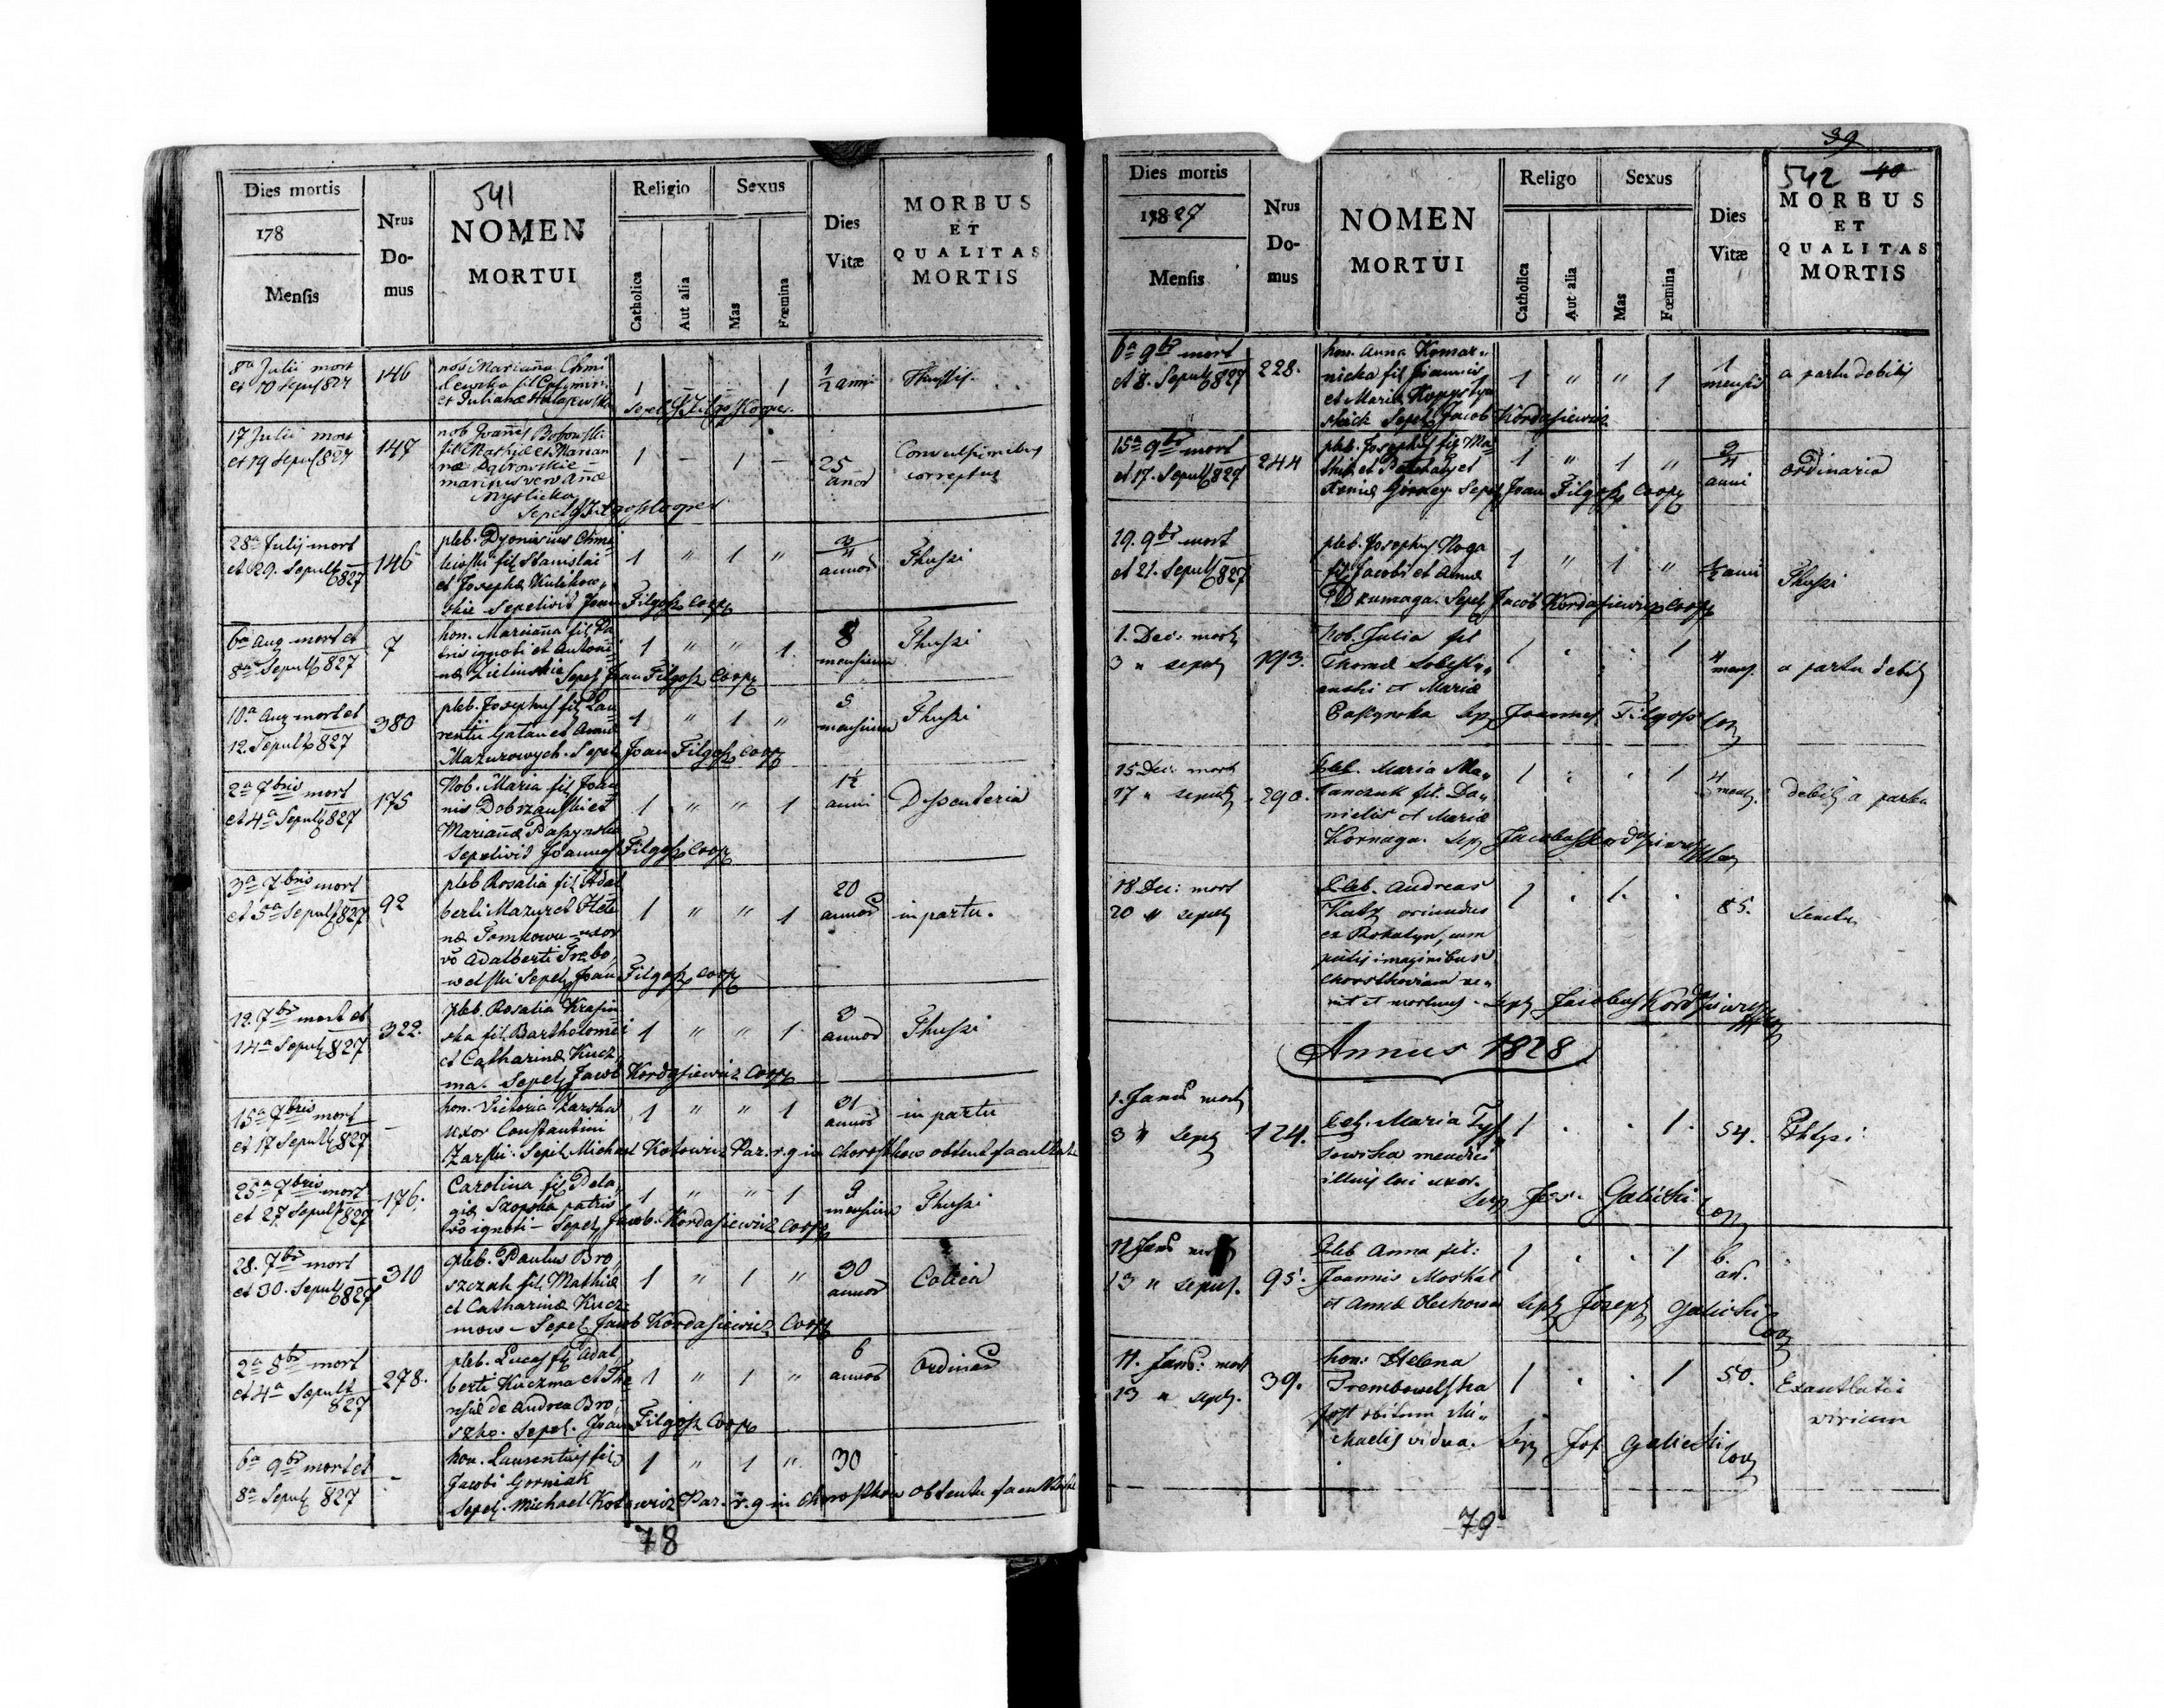 541
Dies mortis
178
Mensis
Nrus Do-mus
NOMEN
MORTUI
Religio
Catholica
Aut alia
Sexus
Mas
Fœmina
Dies Vitæ
MORBUS
ET
QUALITAS
MORTIS
8a Julii mort
et 10 Sepul 827
146
nob Marianna Chmi
1 – – 1
1/2 anni
Thussis
17 Julii mort
et 19 Sepul 827
147
nob Joannes Bobowski
fil Mathiæ et Marian
næ Dąbrowskie
maritus vero Annæ
1 – 1 –
25
annor
Convulsionibus
correptus
28a Julij mort
et 29. Sepult 827
146
pleb. Dyonisius Chmi
lewski fil Stanislai
et Josephæ Kulikow
skie Sepelivit Joan Filgosz Coop
1 " 1 "
3/4
annor
Thussi
6a Aug mort et
8a Sepult 827
7
hon. Marianna fil Pa
tris ignoti et Antoni
næ Zielinskie Sepel Joan Filgosz Coop
1 " " 1
8
mensium
Thussi
10a Aug mort et
12. Sepult 827
380
pleb. Josephus fil Lau
rentii Gatan et Annæ
Mazurowych. Sepel Joan Filgosz Coop
1 " 1 "
5
mensium
Thussi
2a 7bris mort
et 4a Sepult 827
175
Nob. Maria fil Joan
nis Dobrzański et
Mariannæ Paszynska
Sepelivit Joannes Filgosz Coop
1 " " 1
1 1/2
anni
Dyssenteria
3a 7bris mort
et 5a Sepult 827
92
pleb Rosalia fil Adal
berti Mazur et Hele
næ Tomkowu uxor
vo Adalberti Trebo
welski Sepel Joan Filgosz Coop
1 " " 1
20
annor
in partu.
12. 7br mort et
14a Sepult 827
322.
pleb. Rosalia Krasin
ska fil Bartholomei
et Catharinæ Kucz
ma. Sepel Jacob Kordasiewicz Coop
1 " " 1
3
annor
Thussi
15a 7bris mort
et 17 Sepult 827
–
hon. Victoria Zarska
uxor Constantini
Zarski. Sepel Michael Kotowicz Par. r. g in Chorostkow obtent facultate
1 " " 1
21
annor
in partu
25a 7bris mort
et 27 Sepult 827
176.
Carolina fil Pela
giæ Skopska patris
vo ignoti – Sepel Jacob. Kordasiewicz Coop
1 " " 1
9
mensium
Thussi
28. 7br mort
et 30. Sepult 827
310
pleb. Paulus Bro
szczak fil Mathiæ
et Catharinæ Kucz
mow – Sepel Jacob Kordasiewicz Coop
1 " 1 "
30
annor
Colica
2a 8br mort
et 4a Sepult
827
278.
pleb. Lucas fil Adal
berti Kuczma et The
resiæ de Andrea Bro
szko. Sepel. Joan Filgosz Coop
1 " 1 "
6
annor
Ordinar
6a 9br mort et
8a Sepult 827
–
hon. Laurentius fil
Jacobi Gorniak
Sepel. Michael Kotowicz Par. r. g in Chorostkow obtenta facultate
1 " 1 "
30
78
39
542 40
Dies mortis
1827
Mensis
Nrus Do-mus
NOMEN
MORTUI
Religo
Catholica
Aut alia
Sexus
Mas
Fœmina
Dies Vitæ
MORBUS
ET
QUALITAS
MORTIS
6a 9br mort
et 8. Sepult 827
228.
hon. Anna Komar
nicka fil Joannis
et Mariæ
Sepel Jacob Kordasiewicz
1 " " 1
1
mensis
a partu debilis
15a 9br mort
et 17. Sepult 827
244
pleb. Josephus fil Ma
Sepel Joan Filgosz Coop
1 " 1 "
anni
ordinaria
19. 9br mort
et 21. Sepult 827
pleb. Josephus Noga
fil Jacobi et Annæ
Drumaga. Sepel Jacob Kordasiewicz Coop
1 " 1 "
1/2 anni
Thussi
1. Dec: mort
3 " sepult
193.
Nob. Julia fil
Thomæ Sobesty
anski et Mariæ
Paszynska Sep Joannes Filgosz Coop
1 . . 1
4
mens.
a partu debil
15 Dec: mort
17 " sepult
290.
Pleb. Maria Ma
tanczuk fil. Da
nielis et Mariæ
Kornaga. Sep Jacobus Kordasiewicz Coop
1 . . 1
4
mens.
debil a partu
18 Dec: mort
20 " sepult
Pleb. Andreas
Kutz oriundus
ex Rohatyn, cum
pictis imaginibus
Chorostkoviam ve
nit et mortuus – Sep Jacobus Kordasiewicz Coop
1 . 1 .
85.
Senectu
Annus 1828
1. Janr mort
3 " Sepel
124.
Leb. Maria Tys
sowska mendici
illius loci uxor.
Sep Jos. Galicki Coop
1 . . 1.
54.
Phtysi
11 Janr mort
13 " sepult.
95.
Pleb Anna fil:
Joannis Moskal
et Annæ Olechowa Sep Joseph Galicki Coop
1 . . 1
6.
an.
11. Janr: mort
13 " sepul.
39.
hon: Helena
Trembowelska
post obitum Mi
chaelis vidua. Sep Jos Galicki Coop
1 . . 1
50.
Exantlatio
virium
79